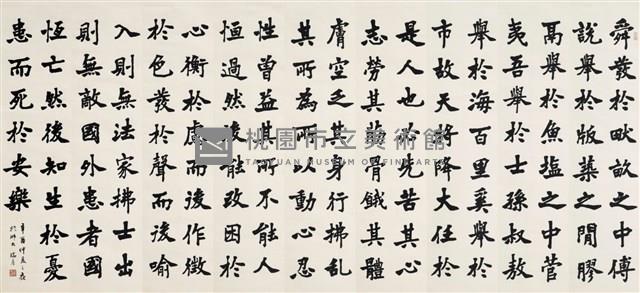 舜發於畎畝之中傅
說舉於版築之閒膠
鬲舉於魚塩之中管
夷吾舉於士孫叔敖
舉於海百里奚舉於
市故天將降大任於
是人也必先苦其心
志勞其筋骨餓其體
膚空乏其身行拂亂
其所為所以動心忍
性曾益其所不能人
恒過然後能改困於
心衡於慮而後作徵
於色發於聲而後喻
入則無法家拂士出
則無敵國外患者國
恆亡然後知生於憂
患而死於安樂
辛酉仲夏之
桃園市立美術館
TAOYUAN MUSEUM OF FINE ARTS